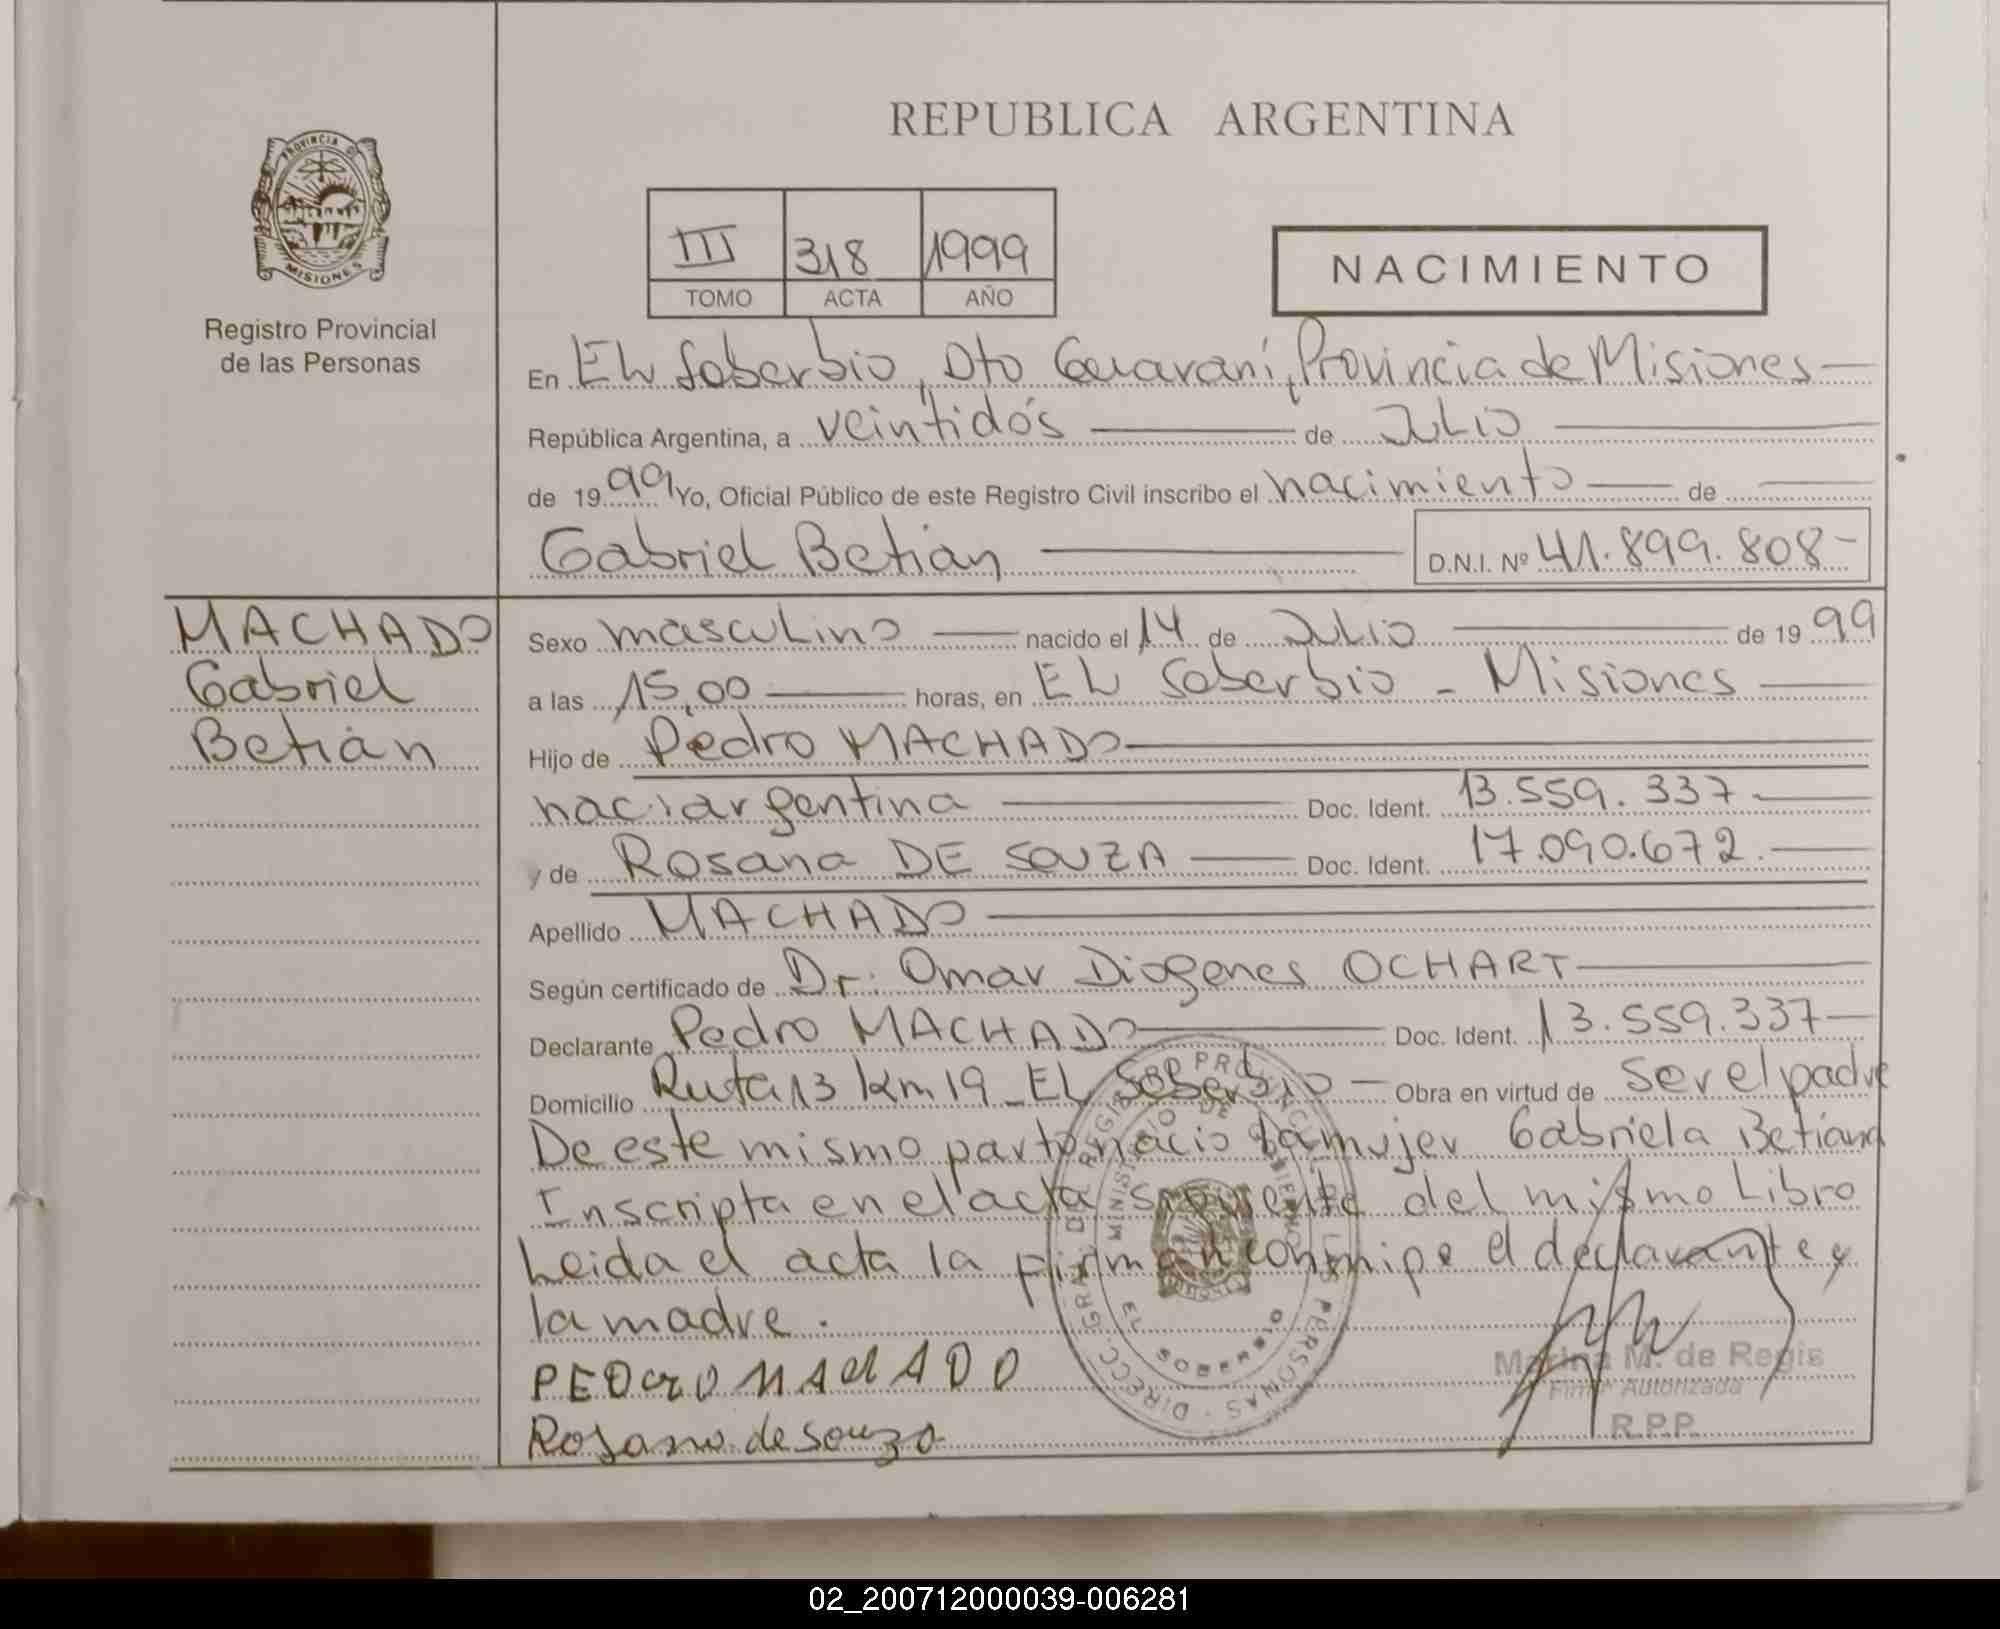 REPUBLICA ARGENTINA
PROVINCIA DE
MISIONES
Registro Provincial
de las Personas
III 318 1999
TOMO ACTA AÑO
NACIMIENTO
En EL Soberbio, Dto Guaraní, Provincia de Misiones
República Argentina, a veintidós de Julio
de 1999 Yo, Oficial Público de este Registro Civil inscribo el nacimiento de
Gabriel Betián D.N.I. Nº 41.899.808-
MACHADO
Gabriel
Betián
Sexo masculino nacido el 14 de Julio de 1999
a las 15,00 horas, en EL Soberbio - Misiones
Hijo de Pedro MACHADO
nac. argentina Doc. Ident. 13.559.337.-
y de Rosana DE SOUZA Doc. Ident. 17.090.672.-
Apellido MACHADO
Según certificado de Dr. Omar Diogenes OCHART
Declarante Pedro MACHADO Doc. Ident. 13.559.337-
Domicilio Ruta 13 km 19 - EL Soberbio - Obra en virtud de ser el padre
De este mismo parto nacio la mujer Gabriela Betiana
Inscripta en el acta siguiente del mismo Libro
Leida el acta la firman conmigo el declarante y
la madre.
PEDRO MACHADO
Rosana de souza
Marina M. de Regis
Firma Autorizada
R.P.P.
EL SOBERBIO
02_200712000039-006281